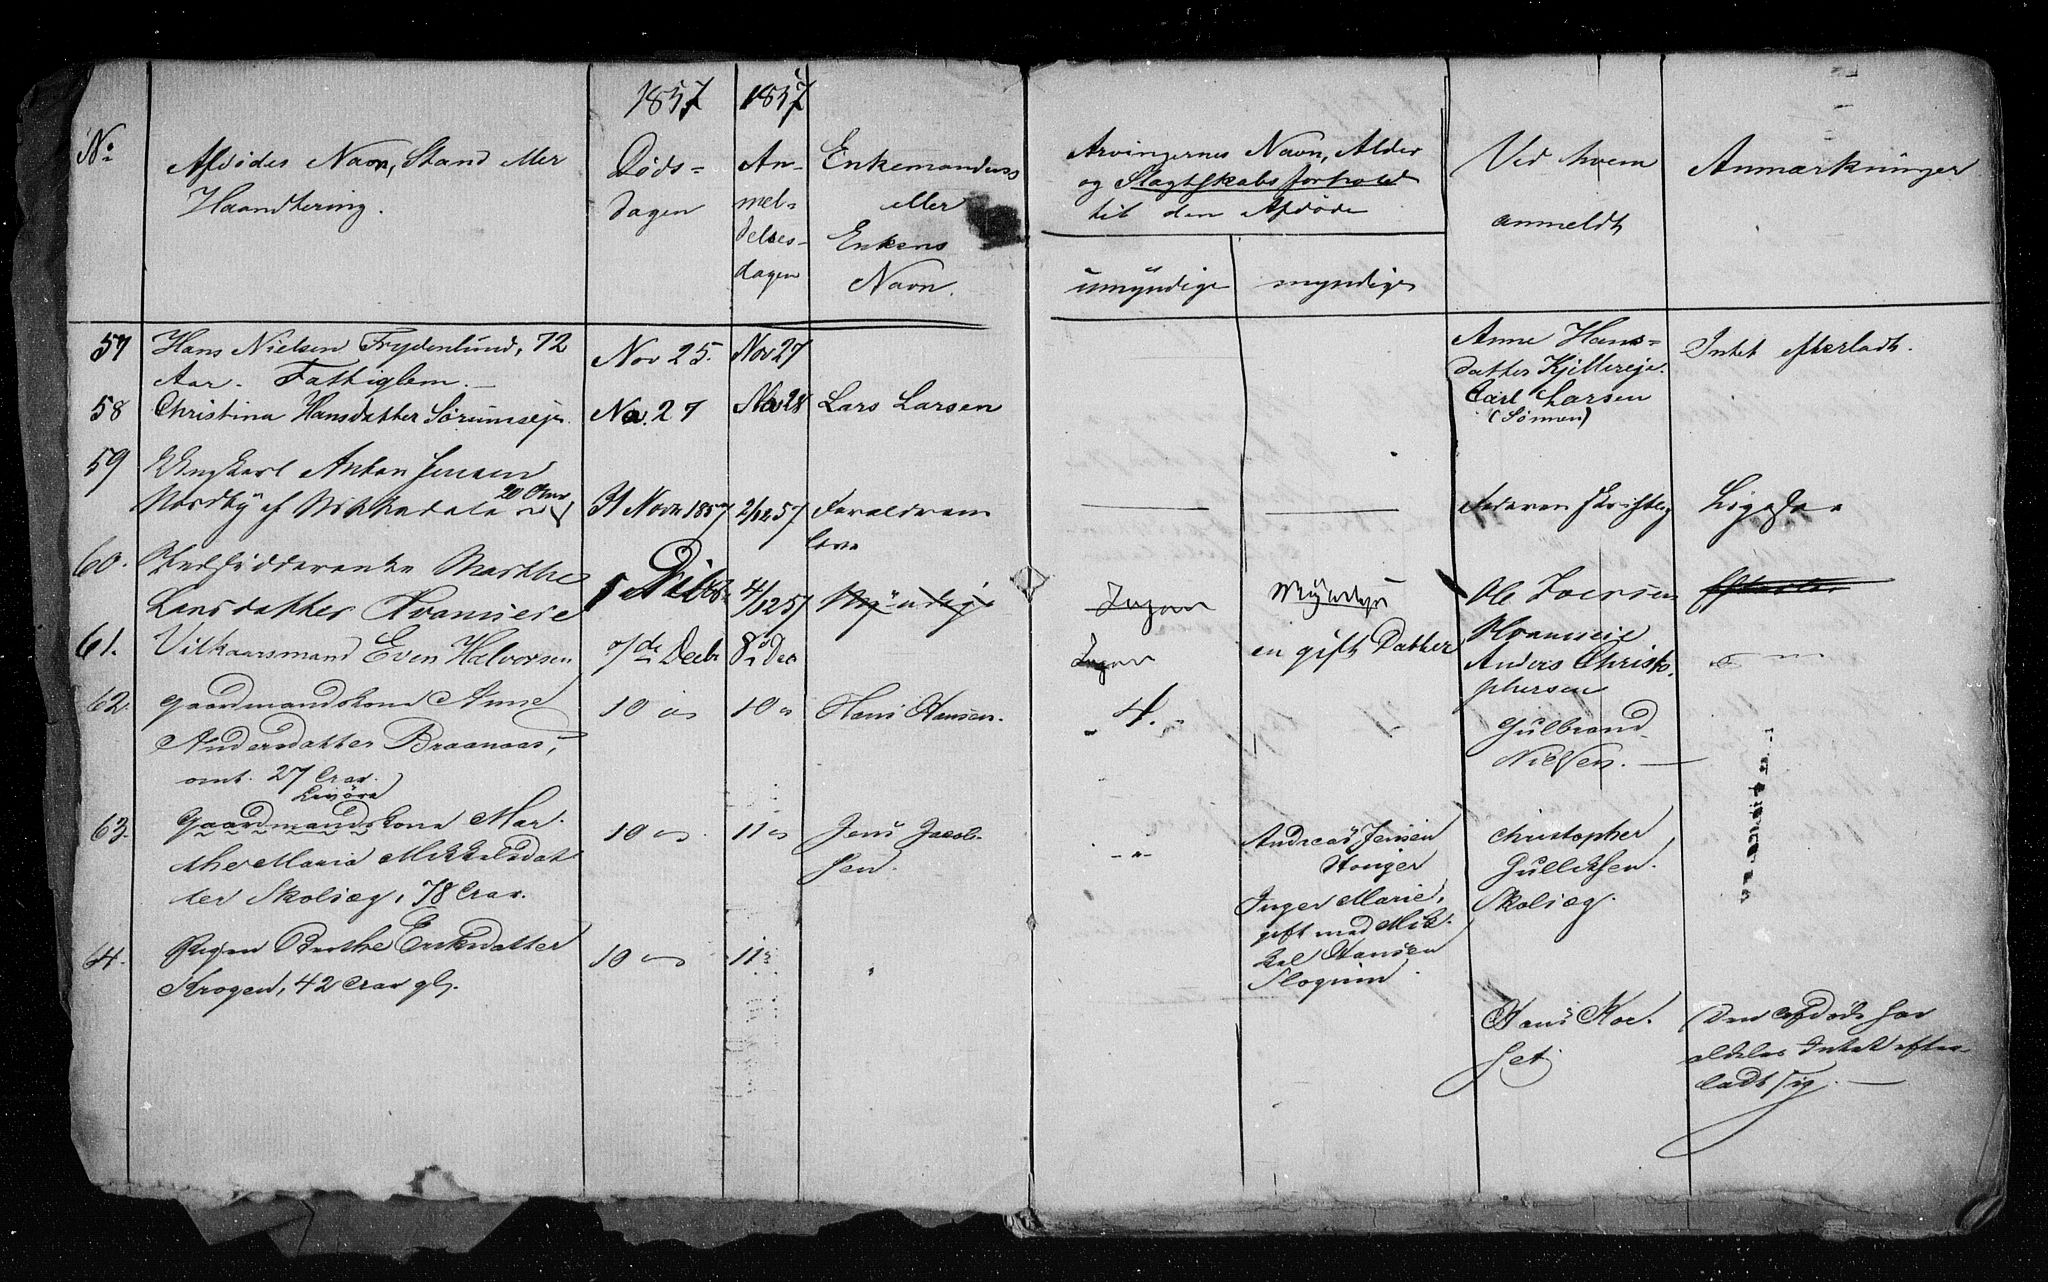 1857
1857
No
Afdødes Navn, Stand eller
Haandtering.
Døds-
dagen
An-
mel-
delses-
dagen
Enkemandens
eller
Enkens
Navn.
Arvingernes Navn, Alder
og Slagtskabsforhold
til den Afdøde
umyndige
myndige
Ved hvem
anmeldt
Anmærkninger
57
Hans Nielsen Frydenlund, 72
Aar. Fattiglem.
Nov 25.
Nov 27
Anne Hans-
datter Kjillereje.
Intet efterladt.
58
Christina Hansdatter Sørumseje.
No. 27
No 28
Lars Larsen
Carl Larsen
(Sønnen)
59
Ungkarl Anton Jensen
Nordby af 20 Aar
31 Novbr 1857
2/12 57
Foraldrene
leve
60.
Marthe
Larsdatter Kramseie
1 Decbr
4/12 57
Myndige
Ingen
Myndige
Ole Iversen
Kramseie
61.
Vilkaarsmand Even Halvorsen
7de Decbr
8de Dec
Ingen
en gift Datter
Anders Christo-
phersen
62.
Gaardmandskone Anne
Andersdatter Braanaas,
omt. 27 Aar.
10
10
Hans Hansen.
4.
Gulbrand
Nielsen.
63.
Levøre
Gaardmandskone Mar-
the Maria Mikkelsdat
ter Skolsæg, 78 Aar.
10
11
Jens Jacob-
sen.
Andreas Jensen
Honger
Inger Marie,
gift med Mik-
kel Hansen
Slognim
Christopher
Gulliksen
Skolsæg.
64.
Pigen Berthe Eriksdatter
Krogen, 42 Aar gl.
10
11
Hans Koe-
set
Den Afdøde har
aldeles Intet efter-
ladt sig.